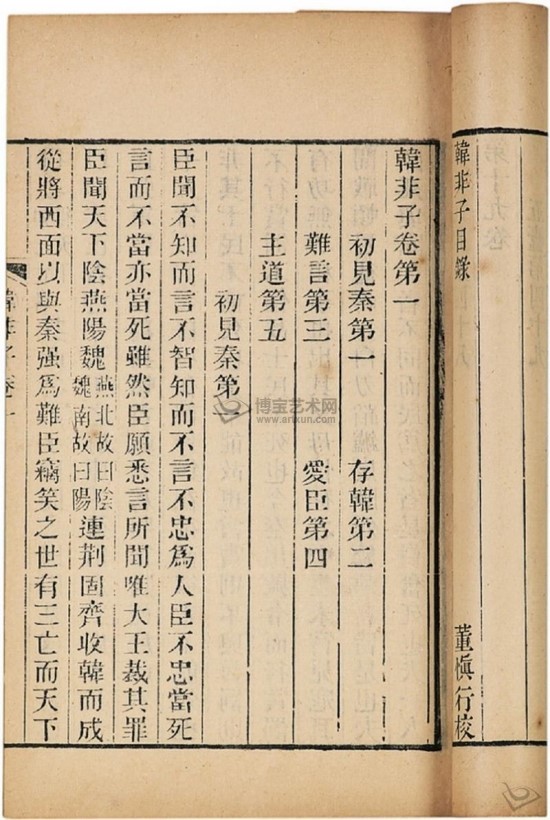 韓非子目錄
董慎行校
韓非子卷第一
初見秦第一 存韓第二
難言第三 愛臣第四
主道第五
初見秦第一
臣聞不知而言不智知而不言不忠爲人臣不忠當死
言而不當亦當死雖然臣願悉言所聞唯大王裁其罪
臣聞天下陰燕陽魏燕北故曰陰魏南故曰陽連荆固齊收韓而成
從將西面以與秦强爲難臣竊笑之世有三亡而天下
韓非子卷一
博宝艺术网
www.artxun.com